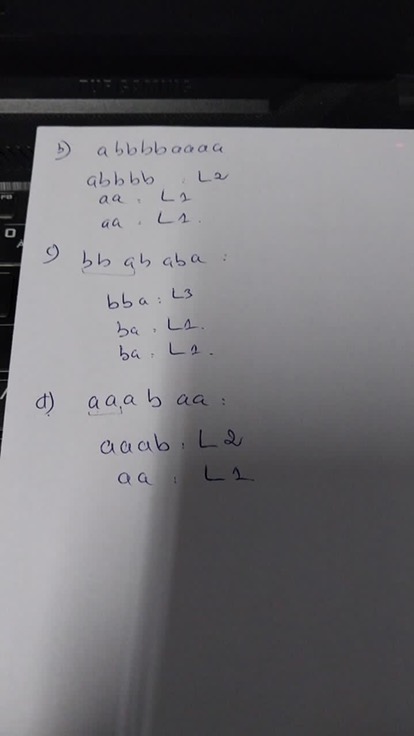 b) abbbbaaaa
abbbb : L2
aa : L1
aa : L1.
c) bb ab aba :
bba : L3
ba : L1.
ba : L1.
d) aaab aa :
aaab : L2
aa : L1